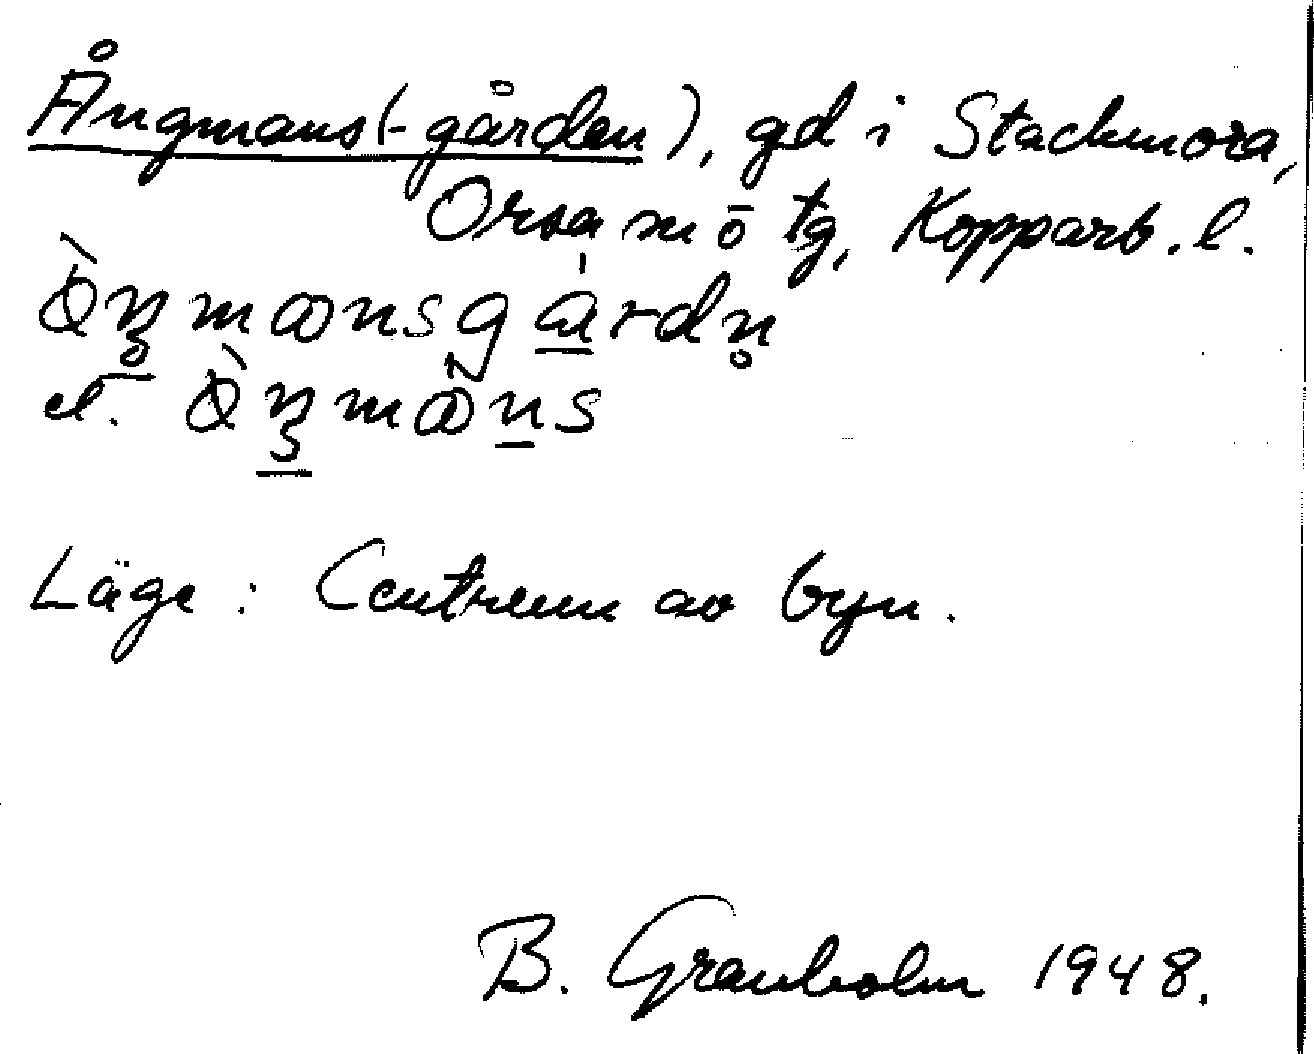 Ångmans(-gården), gd i Stackmora,
Orsa sn ö tg, Kopparb. l.
el.
Läge: Centrum av byn.
B. Granholm 1948.